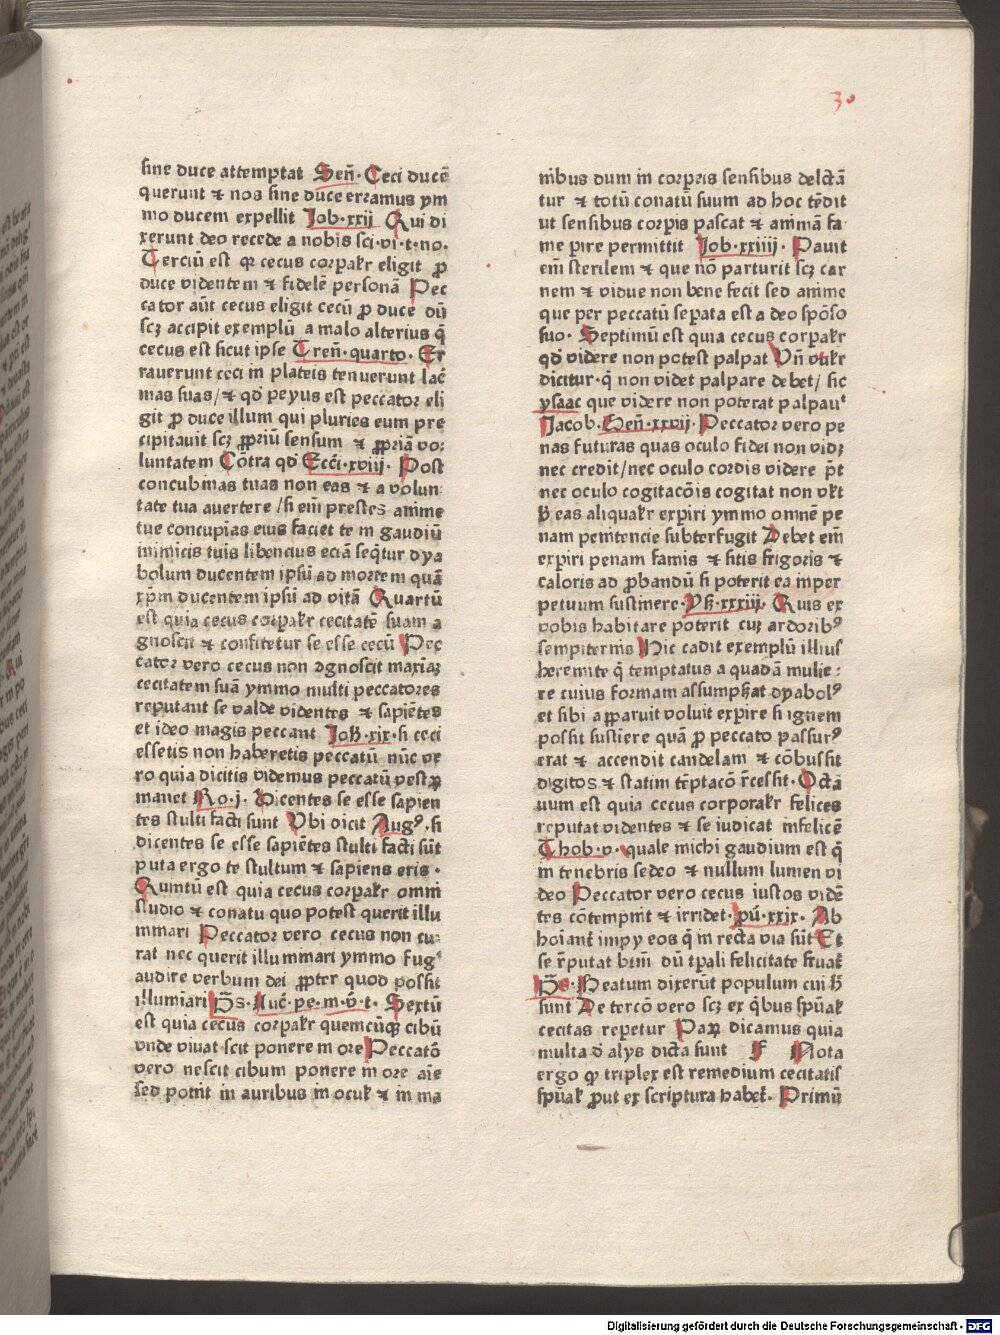 30
sine duce attemptat Señ· Ceci ducē
querunt ⁊ nos sine duce erramus ym
mo ducem expellit Iob·xxij Qui di
xerunt deo recede a nobis sci·vi·t·no·
Terciū est ꝙ cecus corꝑalr eligit ꝓ
duce videntem ⁊ fidelē personā Pec
cator aūt cecus eligit cecū ꝓ duce dū
scꝫ accipit exemplū a malo alterius q̄
cecus est sicut ipse Treñ·quarto· Er
rauerunt ceci in plateis tenuerunt lac̄
mas suas/⁊ qđ peyus est peccator eli
git ꝓ duce illum qui pluries eum pre
cipitauit scꝫ ꝓpriū sensum ⁊ ꝓpriā vo:
luntatem Cōtra qđ Ecci·xviij· Post
concubinas tuas non eas ⁊ a volun
tate tua auertere/si eni prestes anime
tue concupias eius faciet te in gaudiū
inimicis tuis libencius eciā seq̄tur dya
bolum ducentem ipsū ad mortem quā
xp̄m ducentem ipsū ad vitā Quartū
est quia cecus corꝑalr cecitatē suam a
gnoscit ⁊ confitetur se esse cecū Pec
cator vero cecus non agnoscit maxiaꝫ
cecitatem suā ymmo multi peccatores
reputant se valde videntes ⁊ sapiētes
et ideo magis peccant Ioh·xix·si ceci
essetis non haberetis peccatū nūc ve
ro quia dicitis videmus peccatū vestꝝ
manet Ro·j· Dicentes se esse sapien
tes stulti facti sunt Vbi dicit Augꝰ·si
dicentes se esse sapiētes stulti facti sūt
puta ergo te stultum ⁊ sapiens eris·
Quintū est quia cecus corꝑalr omni
studio ⁊ conatu quo potest querit illu
minari Peccator vero cecus non cu:
rat nec querit illuminari ymmo fug
audire verbum dei ꝓpter quod possit
illuminari Ps·Luc̄·pe·m·v̄·t· Sextū
est quia cecus corꝑalr quemcūqꝫ cibū
vnde viuat scit ponere in ore Peccatō
vero nescit cibum ponere in ore aīe
sed ponit in auribus in ocul ⁊ in ma
nibus dum in corꝑis sensibus delctā
tur ⁊ totū conatū suum ad hoc tēdit
ut sensibus corꝑis pascat ⁊ animā fa
me ꝑire permittit Iob·xxiiij· Pauit
em̄ sterilem ⁊ que nō parturit scꝫ car
nem ⁊ vidue non bene fecit sed anime
que per peccatū seꝑata est a deo spōso
suo· Septimū est quia cecus corꝑalr
qđ videre non potest palpat Vn̄ vulr
dicitur·q̄ non videt palpare debet/ sic
ysaac que videre non poterat palpau
Iacob·Gen̄·xxvij·Peccator vero pe
nas futuras quas oculo fidei non vidꝫ
nec credit/nec oculo cordis videre p̄t
nec oculo cogitacōis cogitat non vlt
hʼ eas aliqualr exꝑiri ymmo omnē pe
nam penitencie subterfugit Debet em̄
exꝑiri penam famis ⁊ sitis frigoris ⁊
caloris ad ꝓbandū si poterit ea inper
petuum sustinere·Ps·xxxiij· Quis ex
vobis habitare poterit cuꝫ ardoribꝰ
sempiternis Hic cadit exemplū illius
heremite q̄ temptatus a quadā mulie:
re cuius formam assumpserat dyabolꝰ
et sibi apparuit voluit exꝑire si ignem
possit sustiere quā ꝓ peccato passurꝰ
erat ⁊ accendit candelam ⁊ cōbussit
digitos ⁊ statim tēptacō r̄cessit· Octa
uum est quia cecus corporalr felices
reputat videntes ⁊ se iudicat infelicē
Thob·v·quale michi gaudium est q̄
in tenebris sedeo ⁊ nullum lumen vi
deo Peccator vero cecus iustos vidē
tes cōtempnit ⁊ irridet·pū·xxix· Ab
hoiant impy eos q̄ in recta via sūt Et
se r̄putat btm̄ dū tꝑali felicitate fruat
Ps·Beatum dixerūt populum cui h̄
sunt De tercō vero scꝫ ex q̄bus spūal
cecitas repetur Paꝝ dicamus quia
multa đ alys dicta sunt F Nota
ergo ꝙ triplex est remedium cecitatis
spūal ꝓut ex scriptura habet· Primū
Digitalisierung gefördert durch die Deutsche Forschungsgemeinschaft - DFG